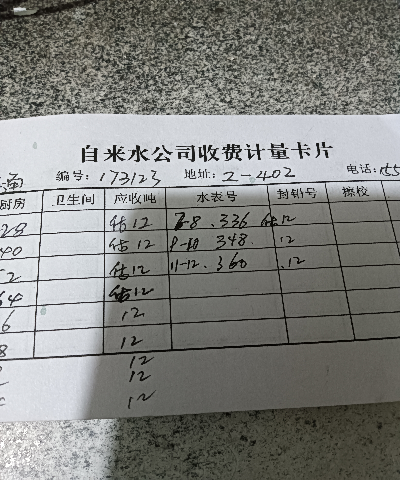 自来水公司收费计量卡片
编号: 173123 地址: 2-402 电话: 155
厨房 卫生间 应收吨 水表号 封铅号 擦校
28 估12 7-8 . 336 估12
40 估12 9-10 348. .12
52 估12 11-12. 360 .12
64 估12
6 12
8 12
12
12
12